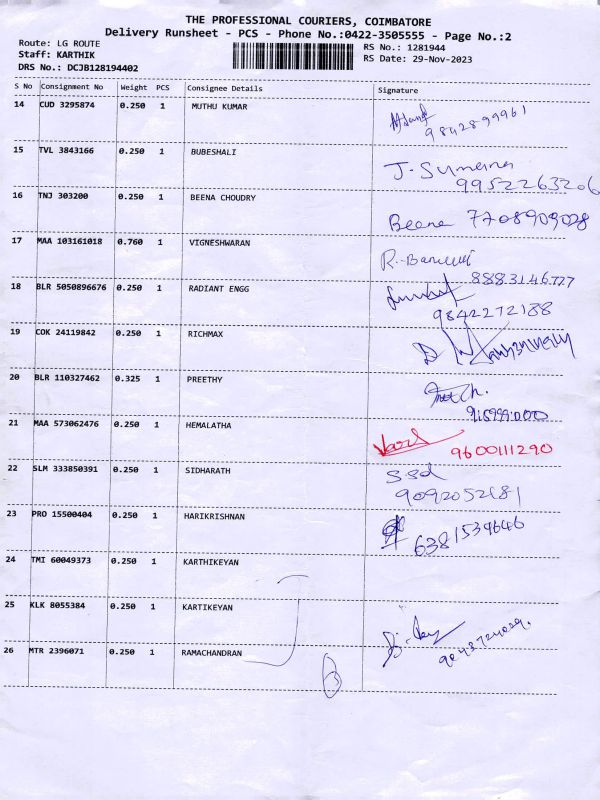 THE PROFESSIONAL COURIERS, COIMBATORE
Delivery Runsheet - PCS - Phone No.:0422-3505555 - Page No.:2
Route: LG ROUTE RS No.: 1281944
Staff: KARTHIK RS Date: 29-Nov-2023
DRS No.: DCJB128194402
S No Consignment No Weight PCS Consignee Details Signature
14 CUD 3295874 0.250 1 MUTHU KUMAR
9842899961
15 TVL 3843166 0.250 1 BUBESHALI
J. Sumena
9952263206
16 TNJ 303200 0.250 1 BEENA CHOUDRY
Beena 7708909028
17 MAA 103161018 0.760 1 VIGNESHWARAN
8883146777
18 BLR 5050896676 0.250 1 RADIANT ENGG
9842272188
19 COK 24119842 0.250 1 RICHMAX
20 BLR 110327462 0.325 1 PREETHY
21 MAA 573062476 0.250 1 HEMALATHA
9600111290
22 SLM 333850391 0.250 1 SIDHARATH
ssd
9092052181
23 PRO 15500404 0.250 1 HARIKRISHNAN
6381539646
24 TMI 60049373 0.250 1 KARTHIKEYAN
25 KLK 8055384 0.250 1 KARTIKEYAN
26 MTR 2396071 0.250 1 RAMACHANDRAN
3